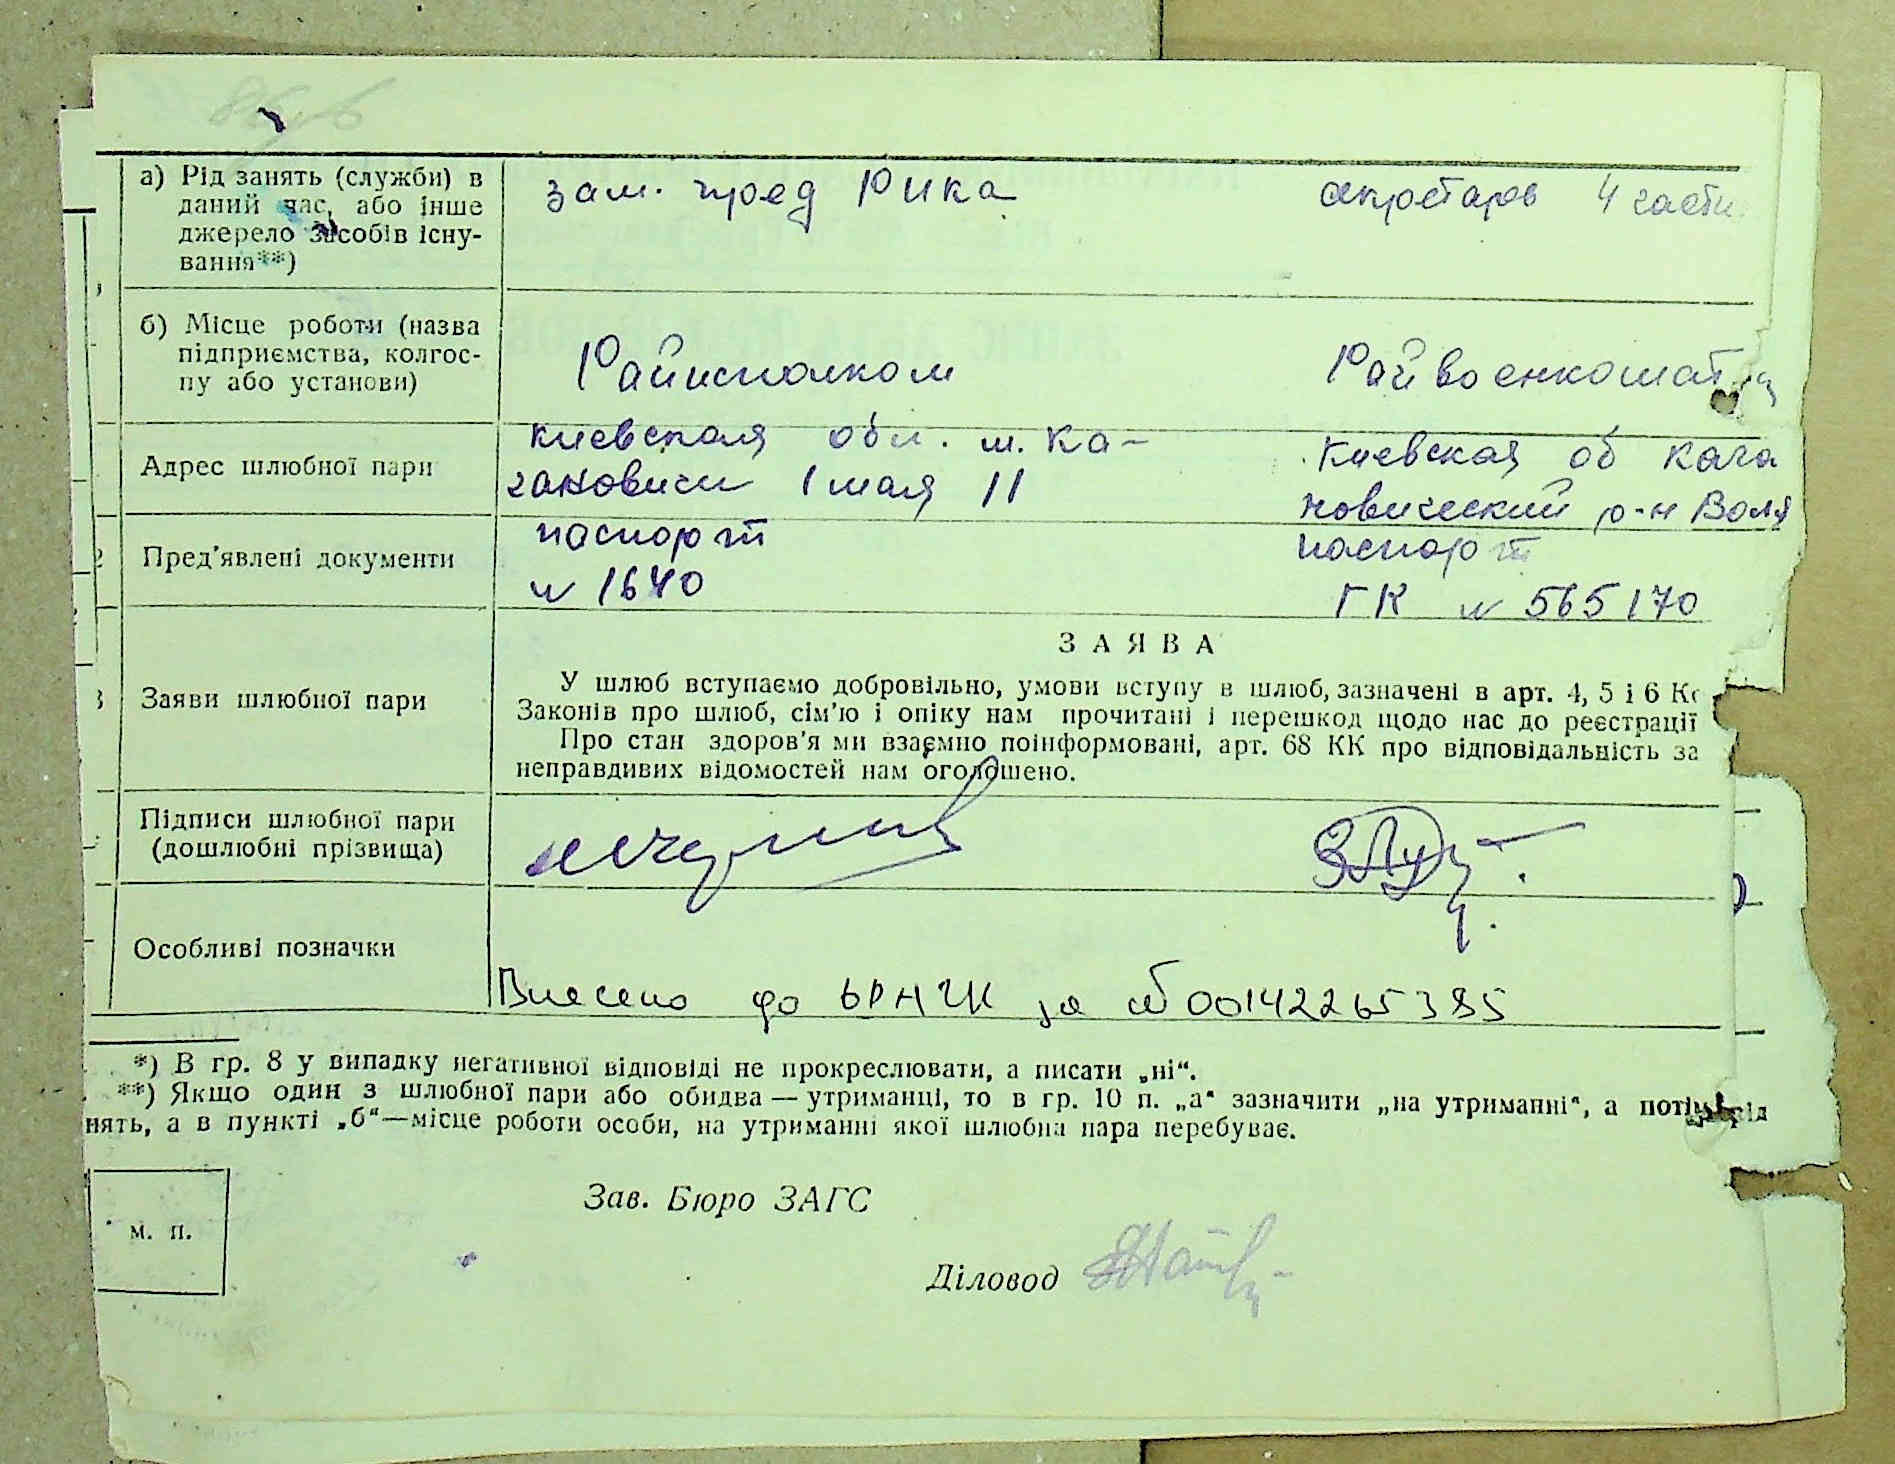 а) Рід занять (служби) в
даний час, або інше
джерело засобів існу-
вання**)
зам. пред Рика
секретарь 4 части
б) Місце роботи (назва
підприємства, колгос-
пу або установи)
Райисполком
Райвоенкомат
Адрес шлюбної пари
Киевская обл. м. Ка-
гановичи 1 мая 11
Киевская об Кага
новический р-н Воля
Пред'явлені документи
паспорт
№ 1640
паспорт
ГК № 565170
Заяви шлюбної пари
ЗАЯВА
У шлюб вступаємо добровільно, умови вступу в шлюб, зазначені в арт. 4, 5 і 6 Ко
Законів про шлюб, сім'ю і опіку нам прочитані і перешкод щодо нас до реєстрації
Про стан здоров'я ми взаємно поінформовані, арт. 68 КК про відповідальність за
неправдивих відомостей нам оголошено.
Підписи шлюбної пари
(дошлюбні прізвища)
Особливі позначки
Внесено до ЬРАЧК за №00142265385
*) В гр. 8 у випадку негативної відповіді не прокреслювати, а писати „ні“.
**) Якщо один з шлюбної пари або обидва — утриманці, то в гр. 10 п. „а“ зазначити „на утриманні“, а потім рід
нять, а в пункті „б“—місце роботи особи, на утриманні якої шлюбна пара перебуває.
м. п.
Зав. Бюро ЗАГС
Діловод